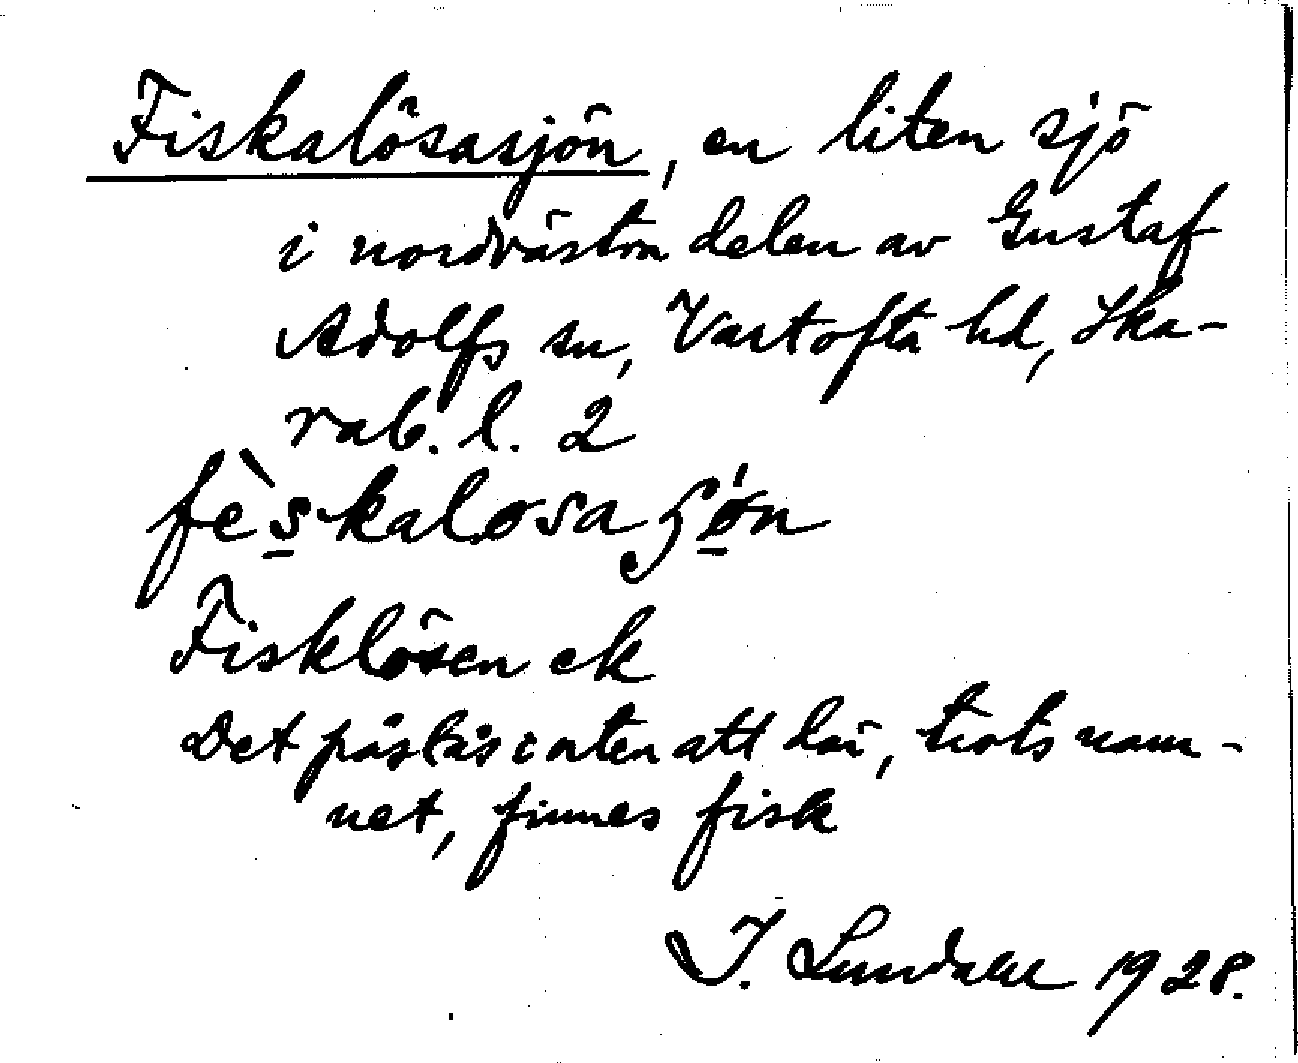 Fiskalösasjön, en liten sjö
i nordvästra delen av Gustaf
Adolfs sn, Vartofta hd, Ska-
rab. l. 2
fèskalosaʂǿn
Fisklösen ek
Det påstås i orten att där, trots nam-
net, finnes fisk
I. Lundahl 1928.